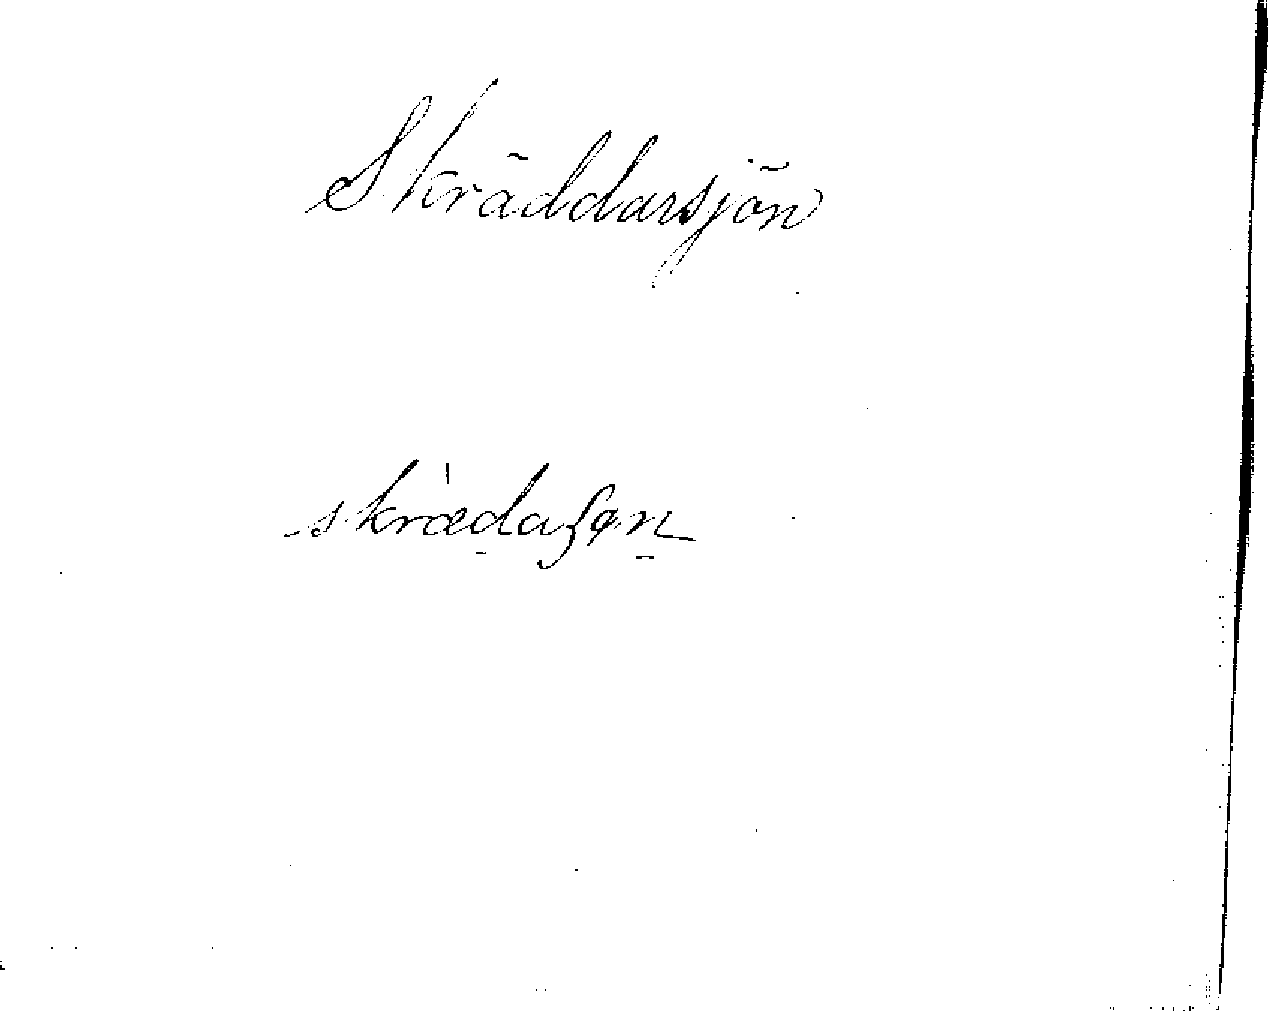 Skräddarsjön
skræ̀d̠aʃøn̠